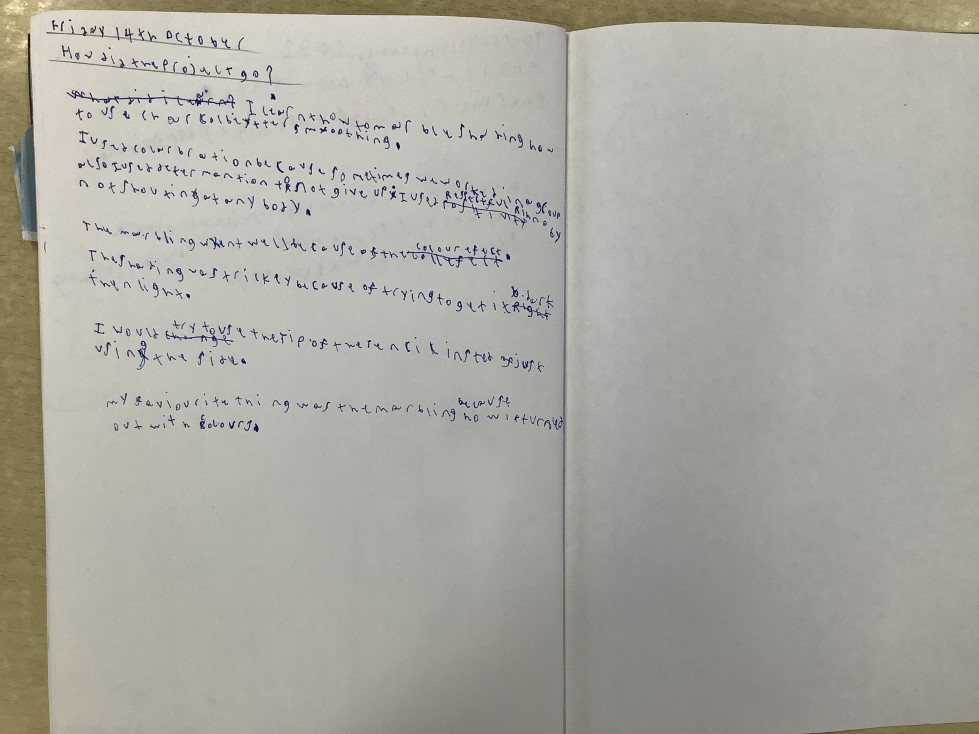 Friday 14th October
How did the project go?
I learnt how to marble shading how
to use charkolbetter smoothing.
I used colarbration because sometimes we worked in a group
also I used determantion to not give up I used Respectfulin by
not shouting at any body.
The marbling went well because of the colour efect.
The shading was trickey because of trying to get it dark
then light.
I would try to use the tip of the pencil insted of just
using the side.
my faviourite thing was the marbling because how it turned
out with colours.